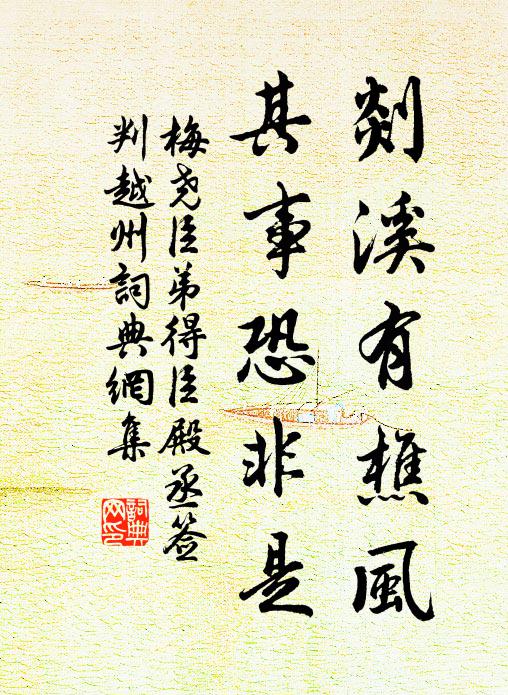 剡溪有樵風
其事恐非是
梅尧臣弟得臣殿丞签
判越州詞典網集
詞典网印